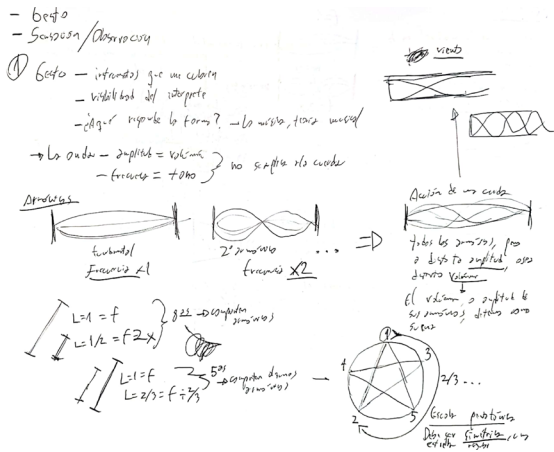 - Gesto
- Sensación / Observación
① Gesto - instrumentos que un
- visibilidad del interprete
- ¿A qué responde la forma? → La música, teoría musical
→ La onda - amplitud = volumen
- frecuencia = tono
no se aplica a la cuerda
Armónicos
fundamental
frecuencia x1
2º armónico
frecuencia x2
...
viento
Acción de una cuerda
todos los armónicos, pero
a distinta amplitud, osea
distinto volumen
El volumen, o amplitud de
sus armónicos, como
suena
L=1 = f
L=1/2 = f2x
8as → comparten
armónicos
L=1 = f
L=2/3 = f÷2/3
5as
→ comparten
armónicos
1
3
5
2
4
2/3 ...
Escala pentatónica
Debe ser simétrica, una
estrella